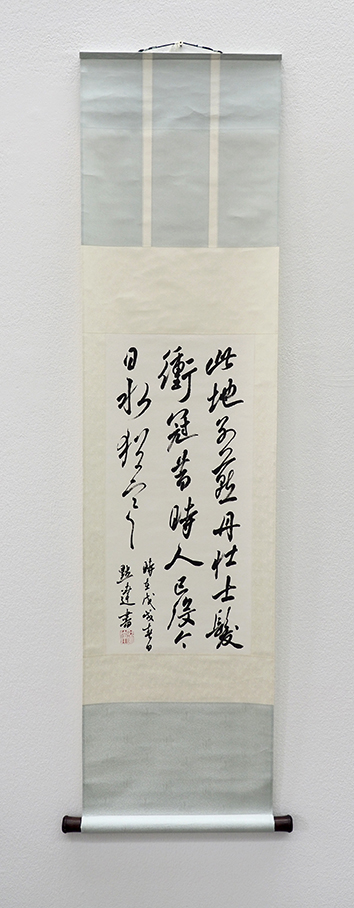 此地别燕丹壮士髮
衝冠昔時人已没今
日水猶寒
時在戊戌春日
書